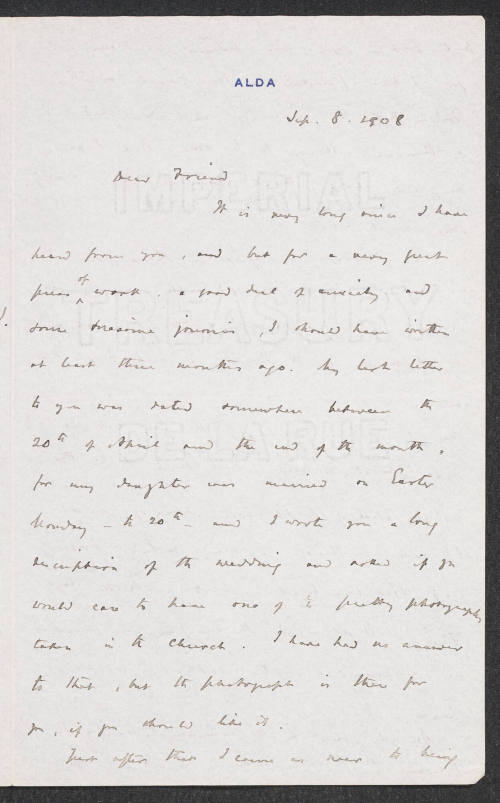 ALDA
Sep. 8. 1908
Dear Friend
It is very long since I have
heard from you, and but for a very great
press of work, a good deal of anxiety and
some tiresome journeys, I should have written
at least three months ago. My last letter
to you was dated somewhere between the
20th of April and the end of the month,
for my daughter was married on Easter
Monday - the 20th - and I wrote you a long
description of the wedding and asked if you
would care to have one of the pretty photographs
taken in the church. I have had no answer
to that, but the photograph is there for
you, if you should like it.
Just after that I came as near to being
IMPERIAL
TREASURY
DE LA RUE